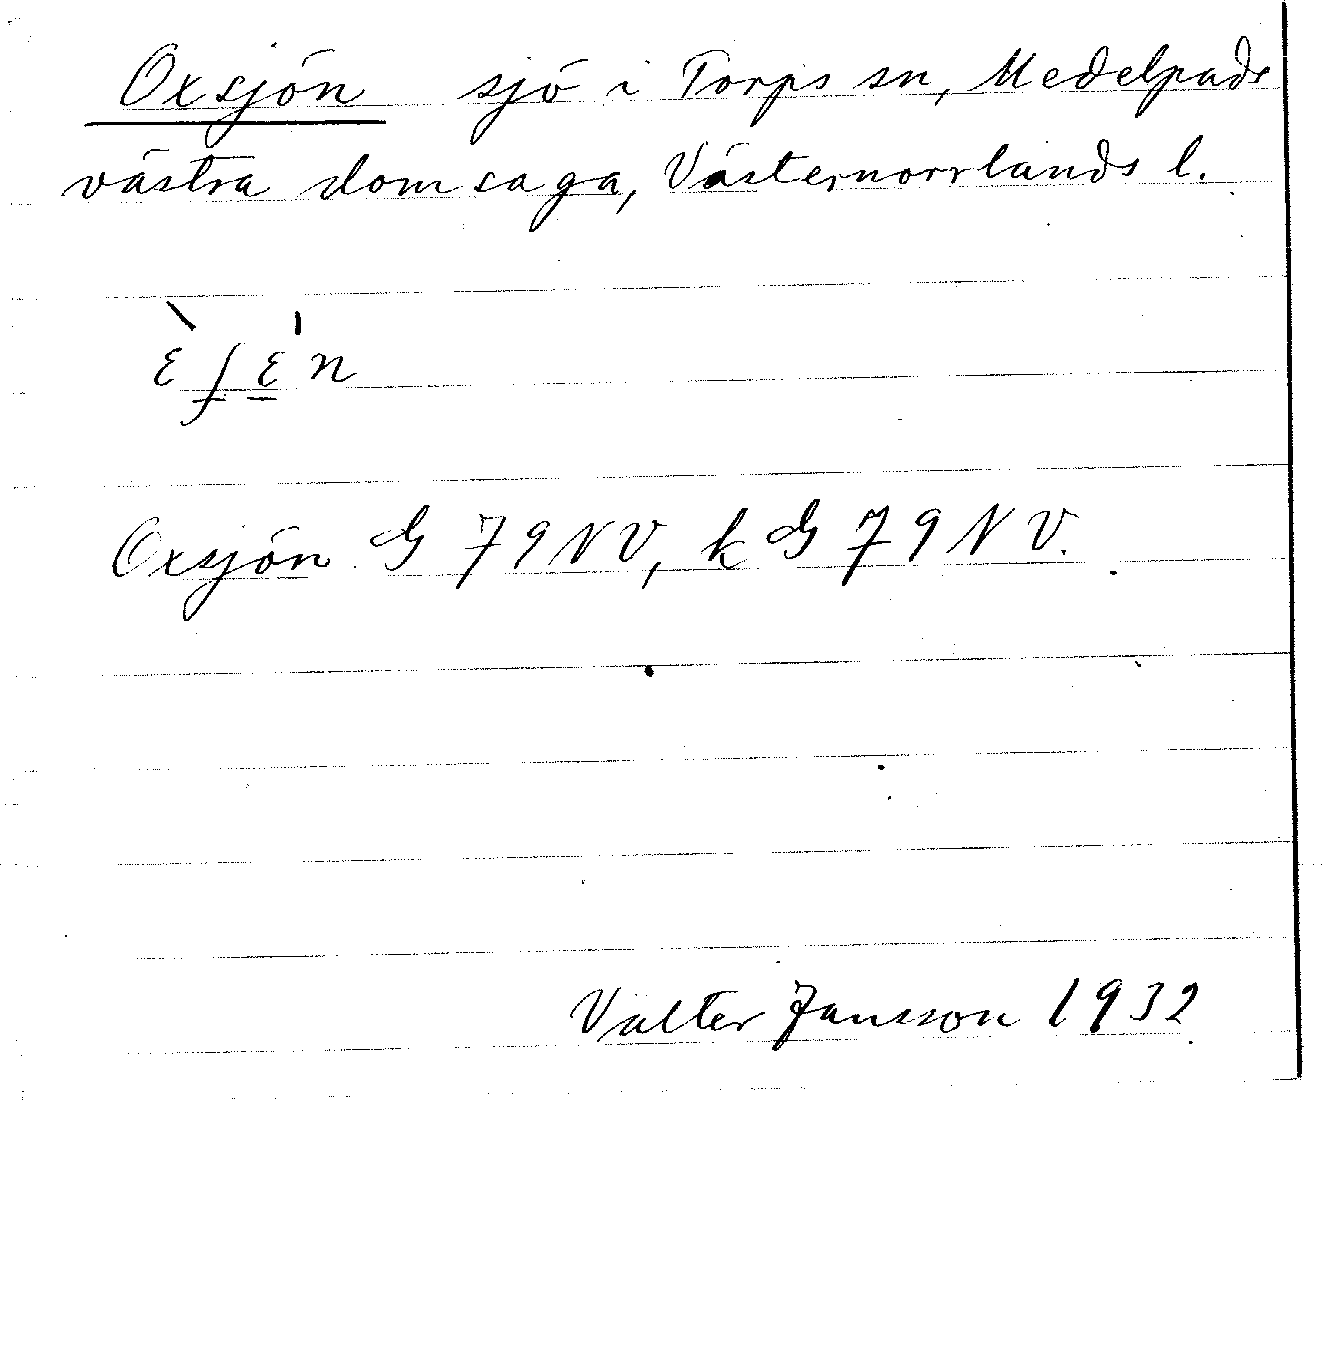 Oxsjön sjö i Torps sn, Medelpads
västra domsaga, Västernorrlands l.
ὲʃɛ́n
Oxsjön G 79 NV, k G 79 NV.
Valter Jansson 1932